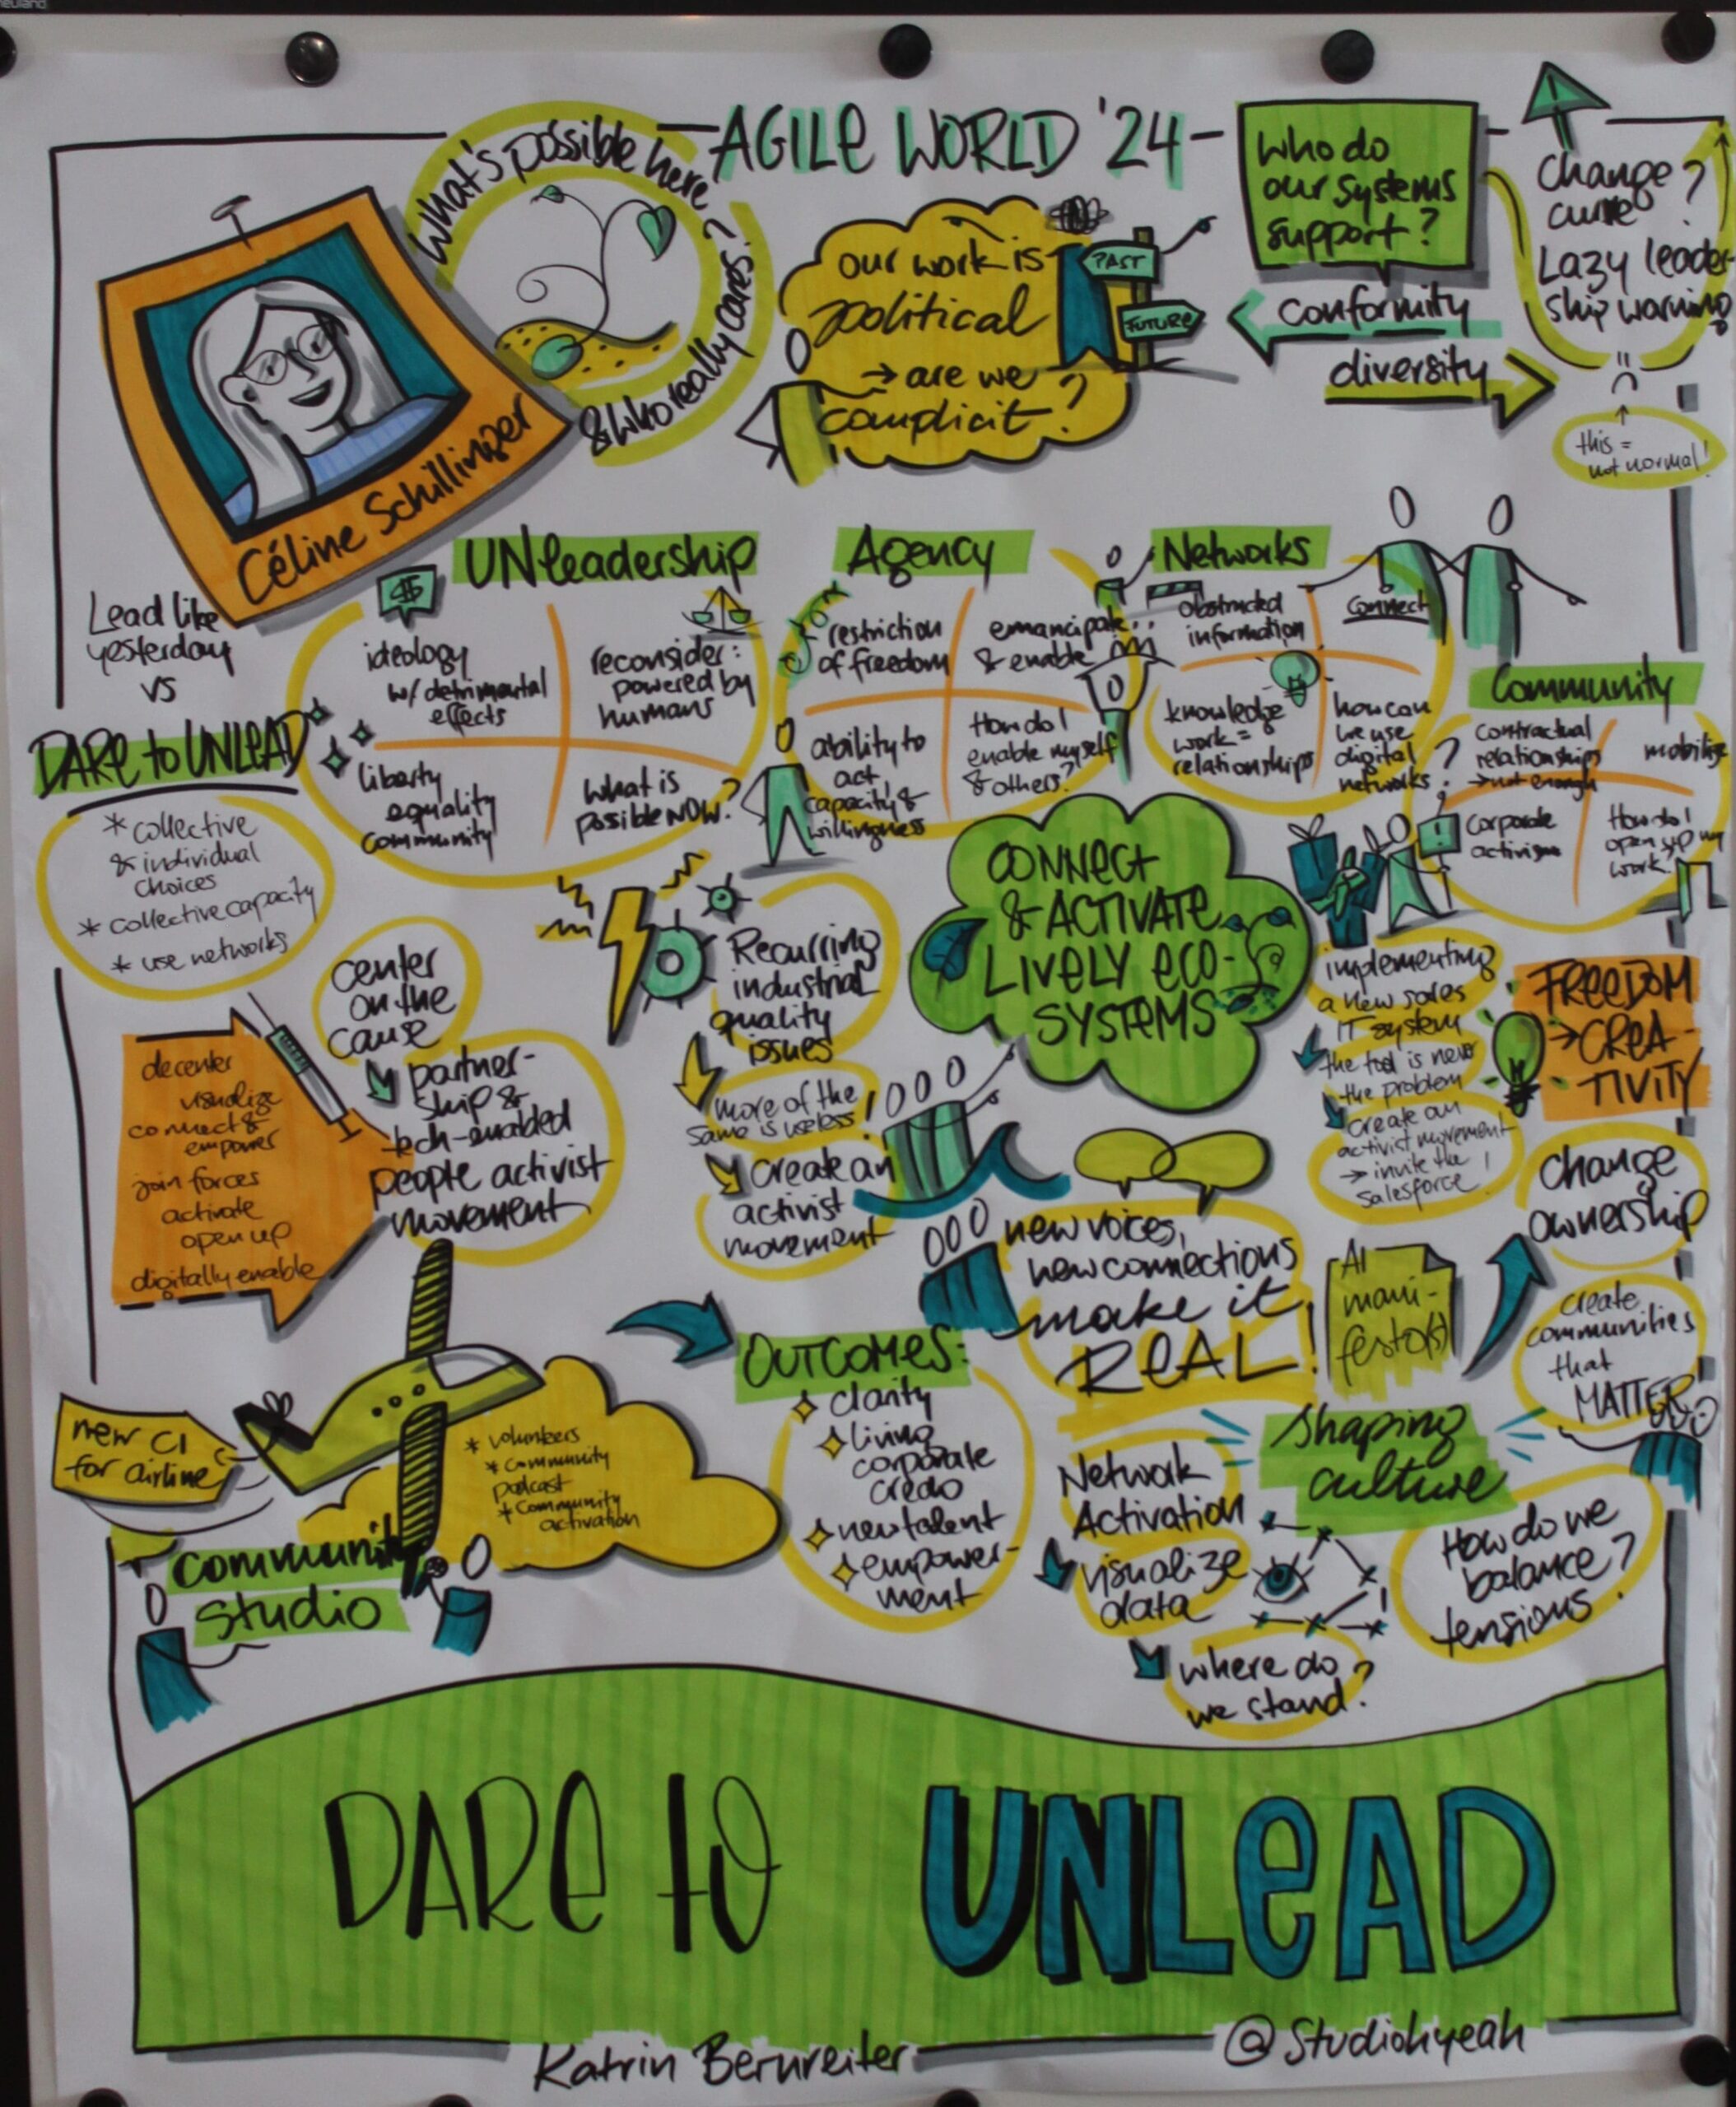 AGILE WORLD '24
What's possible here
& who really cares?
Céline Schillinger
our work is
political
→ are we
complicit?
PAST
FUTURE
Who do
our systems
support?
conformity
diversity
Change
curve?
Lazy leader-
ship warning
this =
not normal!
Lead like
yesterday
vs
DARE to UNLEAD
* collective
& individual
choices
* collective capacity
* use networks
UNleadership
$
ideology
w/ detrimental
effects
reconsider:
powered by
humans
liberty
equality
community
What is
possible NOW?
Agency
restriction
of freedom
emancipate
& enable
ability to
act,
capacity &
willingness
How do I
enable myself
& others?
Networks
obstructed
information
connect
knowledge
work =
relationships
how can
we use
digital
networks?
Community
contractual
relationships
→ not enough
mobilize
Corporate
activism
How do I
open up my
work?
center
on the
cause
partner-
ship &
tech-enabled
people activist
movement
decenter
visualize
connect &
empower
join forces
activate
open up
digitally enable
Recurring
industrial
quality
issues
more of the
same is useless!
create an
activist
movement
CONNECT
& ACTIVATE
LIVELY ECO-
SYSTEMS
implementing
a new sales
IT system
the tool is never
the problem
create an
activist movement
→ invite the
salesforce!
FREEDOM
→ CREA-
TIVITY
change
ownership
new voices,
new connections
make it
REAL!
AI
mani-
festo(s)
create
communities
that
MATTER
new CI
for airline
* volunteers
* community
podcast
* community
activation
community
studio
OUTCOMES:
clarity
living
corporate
credo
new talent
empower-
ment
Shaping
culture
Network
Activation
visualize
data
where do
we stand?
How do we
balance
tensions?
DARE to UNLEAD
Katrin Bernreiter
@Studiohyeah